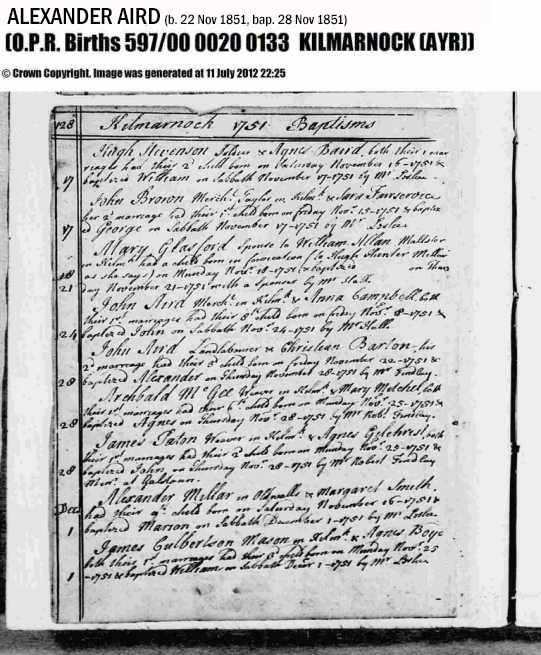 ALEXANDER AIRD (b. 22 Nov 1851, bap. 28 Nov 1851)
(O.P.R. Births 597/00 0020 0133 KILMARNOCK (AYR))
© Crown Copyright. Image was generated at 11 July 2012 22:25
128 Kilmarnock 1751 Baptisms
Hugh Stevenson & Agnes Baird both their 1 mar
riage had their 2d child born on Saturday November 16-1751 &
17 baptized William on Sabbath November 17-1751 by Mr Leslie
John Brown Mercht Taylor in Kilmk & Jars Fairservice
2d marriage had their 1st child born on friday Novr 15-1751 & baptiz
17 ed George on Sabbath November 17-1751 by Mr Leslie
Mary Glasford Spouse to William Allan Maltster
in Kilmk had a child born in fornication (to Hugh
18 as she says) on Munday Novr 18-1751 & baptized on Thurs
21 day November 21-1751 with a Sponsor by Mr Hall
John Aird Mercht in Kilmk & Anna Campbell both
their 1st marriages had their 8th child born on friday Novr 8-1751 &
24 baptized John on Sabbath Novr 24-1751 by Mr Hall
John Aird Landlabourer & Christian Barlon his
2d marriage had their child born on friday November 22-1751 &
28 baptized Alexander on Thursday November 28-1751 by Mr Findlay
Archbald McGee Weaver in Kilmk & Mary Mitchel both
their 1st marriages had their 6th child born on Munday Novr 25-1751 &
28 baptized Agnes on Thursday Novr 28-1751 by Mr Robt Findlay
James Taton Weaver in Kilmk & Agnes Gilchrist both
their 1st marriages had their 2d child born on Munday Novr 25-1751 &
28 baptized John on Thursday Novr 28-1751 by Mr Robert Findlay
Minr at Galstoun.
Decr Alexander Millar in & Margaret Smith
had their 9th child born on Saturday November 16-1751 &
1 baptized Marion on Sabbath December 1-1751 by Mr Leslie
James Culbertson Mason in Kilmk & Agnes Boyd
both their 1st marriages had their child born on Munday Novr 25
1 -1751 & baptized William on Sabbath Decr 1-1751 by Mr Leslie